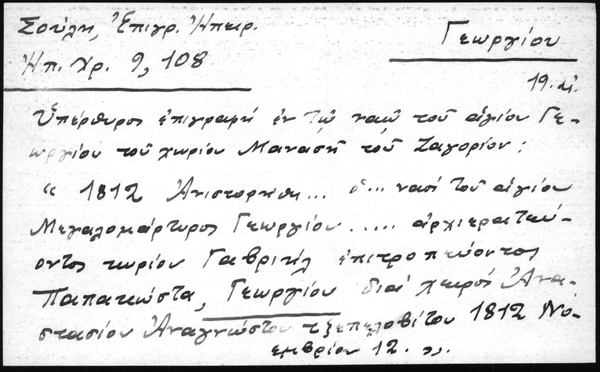 Σούλη, Ἐπιγρ. Ἠπειρ.
Γεωργίου
Ἠπ. Χρ. 9, 108
19. αἰ.
Ὑπέρθυρος ἐπιγραφή ἐν τῷ ναῷ τοῦ ἁγίου Γε-
ωργίου τοῦ χωρίου Μανασῆ τοῦ Ζαγορίου:
" 1812 Ἀνιστορήθη... ὁ... ναός τοῦ ἁγίου
Μεγαλομάρτυρος Γεωργίου ..... ἀρχιερατεύ-
οντος κυρίου Γαβριήλ ἐπιτροπεύοντος
Παπακώστα, Γεωργίου διά χειρός Ἀνα-
στασίου Ἀναγνώστου τζεπελοβίτου 1812 Νο-
εμβρίου 12. "